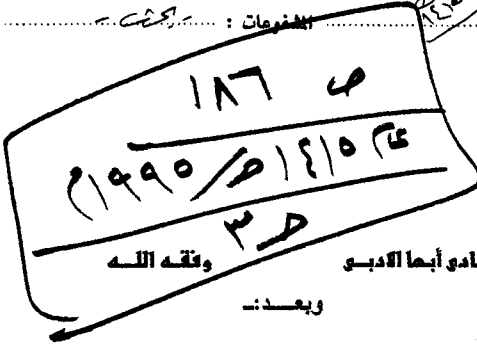 المشفوعات : البحث
ص ١٨٦
عام ١٤١٥ هـ / ١٩٩٥ م
حـ ٣
نادى أبها الادبـى وفقـه اللــه
وبعــد:ـ